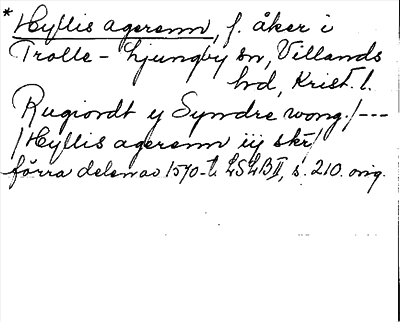 * Hyllis agerenn, f. åker i
Trolle-Ljungby sn, Villands
hd, Krist. l.
Rugiordt y Syndre wong./---
/Hyllis agerenn iij skr/
förra delen av 1570-t. LSLB II, s. 210. orig.